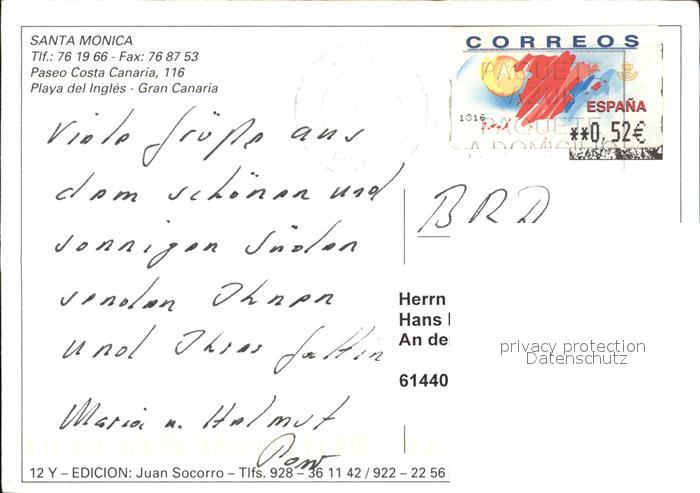 SANTA MONICA
Tlf.: 76 19 66 - Fax: 76 87 53
Paseo Costa Canaria, 116
Playa del Inglés - Gran Canaria
CORREOS
PAQUETE
AZUL
ESPAÑA
1016
PAQUETE
**0,52€
A DOMICILIO
Viele Grüße aus
dem schönen und
sonnigen Süden
senden Ihnen
und Ihrer Gattin
Maria u. Helmut
BRD
Herrn
Hans
An de
61440
privacy protection
Datenschutz
12 Y – EDICION: Juan Socorro – Tlfs. 928 – 36 11 42 / 922 – 22 56